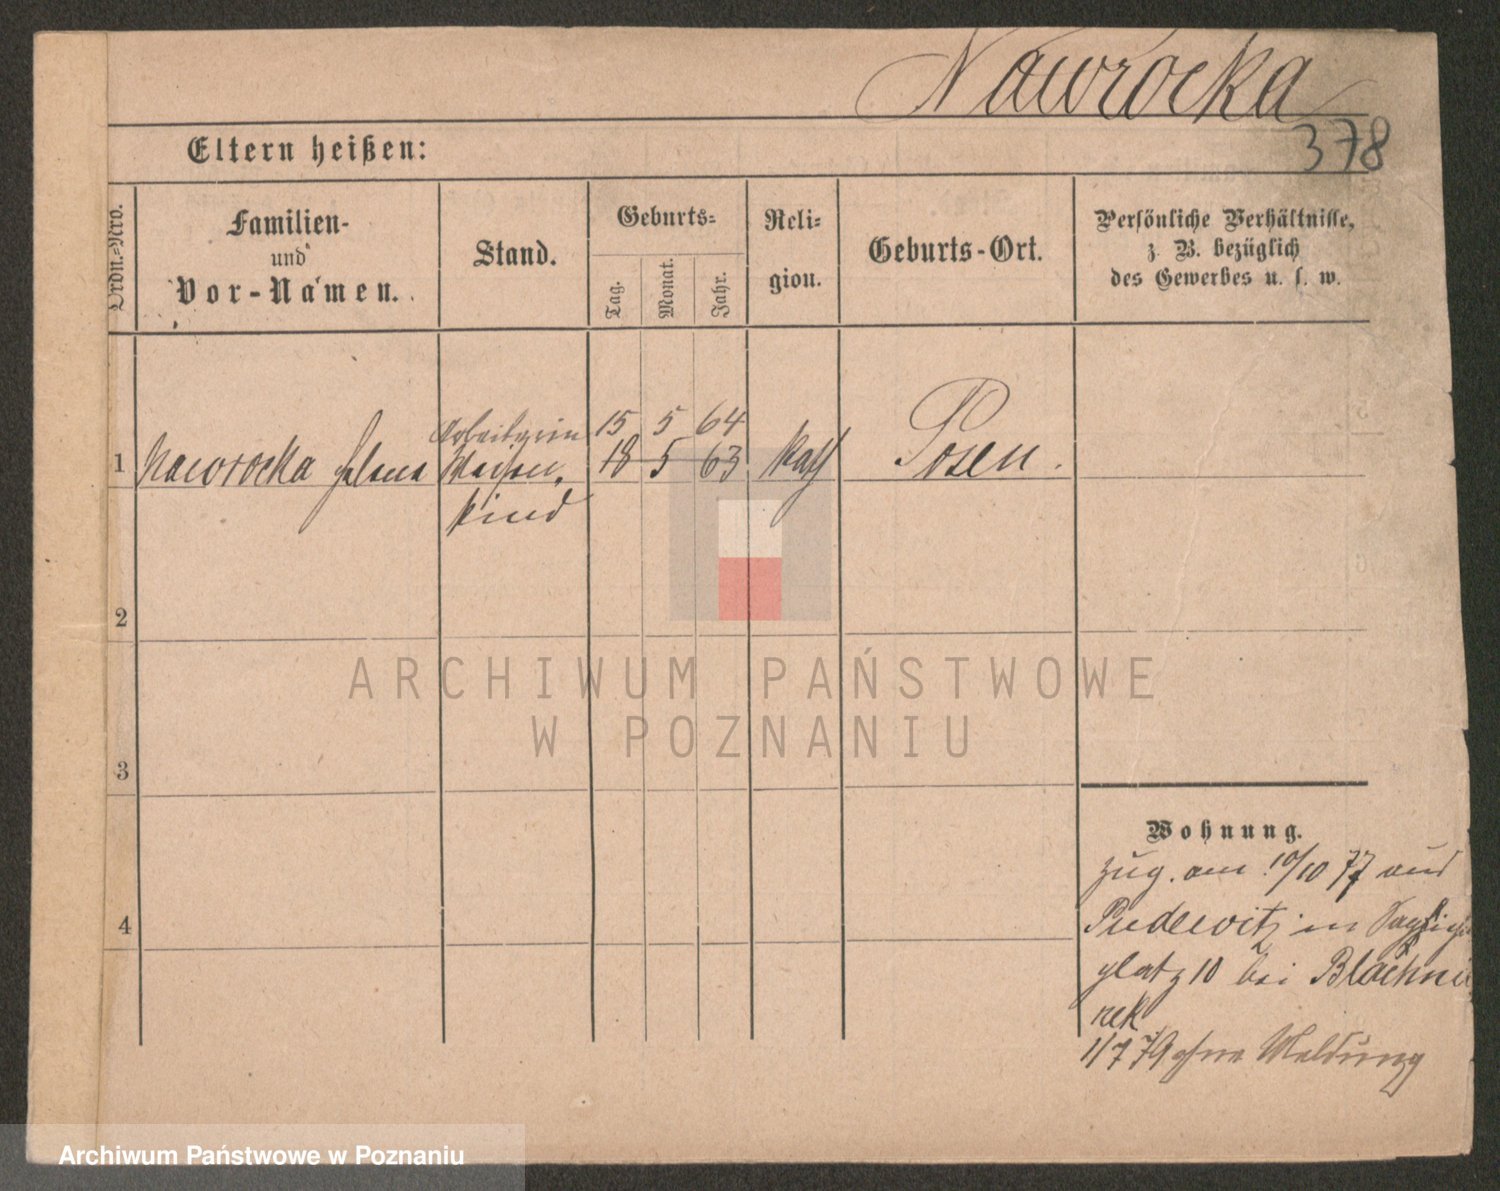 Nawrocka
378
Eltern heißen:
Ordn.-Nro.
Familien-
und
Vor-Namen.
Stand.
Geburts-
Tag.
Monat.
Jahr.
Reli-
gion.
Geburts-Ort.
Persönliche Verhältnisse,
z. B. bezüglich
des Gewerbes u. s. w.
Arbeiterin 15 5 64
1 Nawrocka Helena Waisen- 18 5 63 Kath Posen.
kind
2
3
4
Wohnung.
zug. am 10/10 77 aus
Pudewitz in
platz 10 bei
rek
1/7 79 ohne Meldung
ARCHIWUM PAŃSTWOWE
W POZNANIU
Archiwum Państwowe w Poznaniu